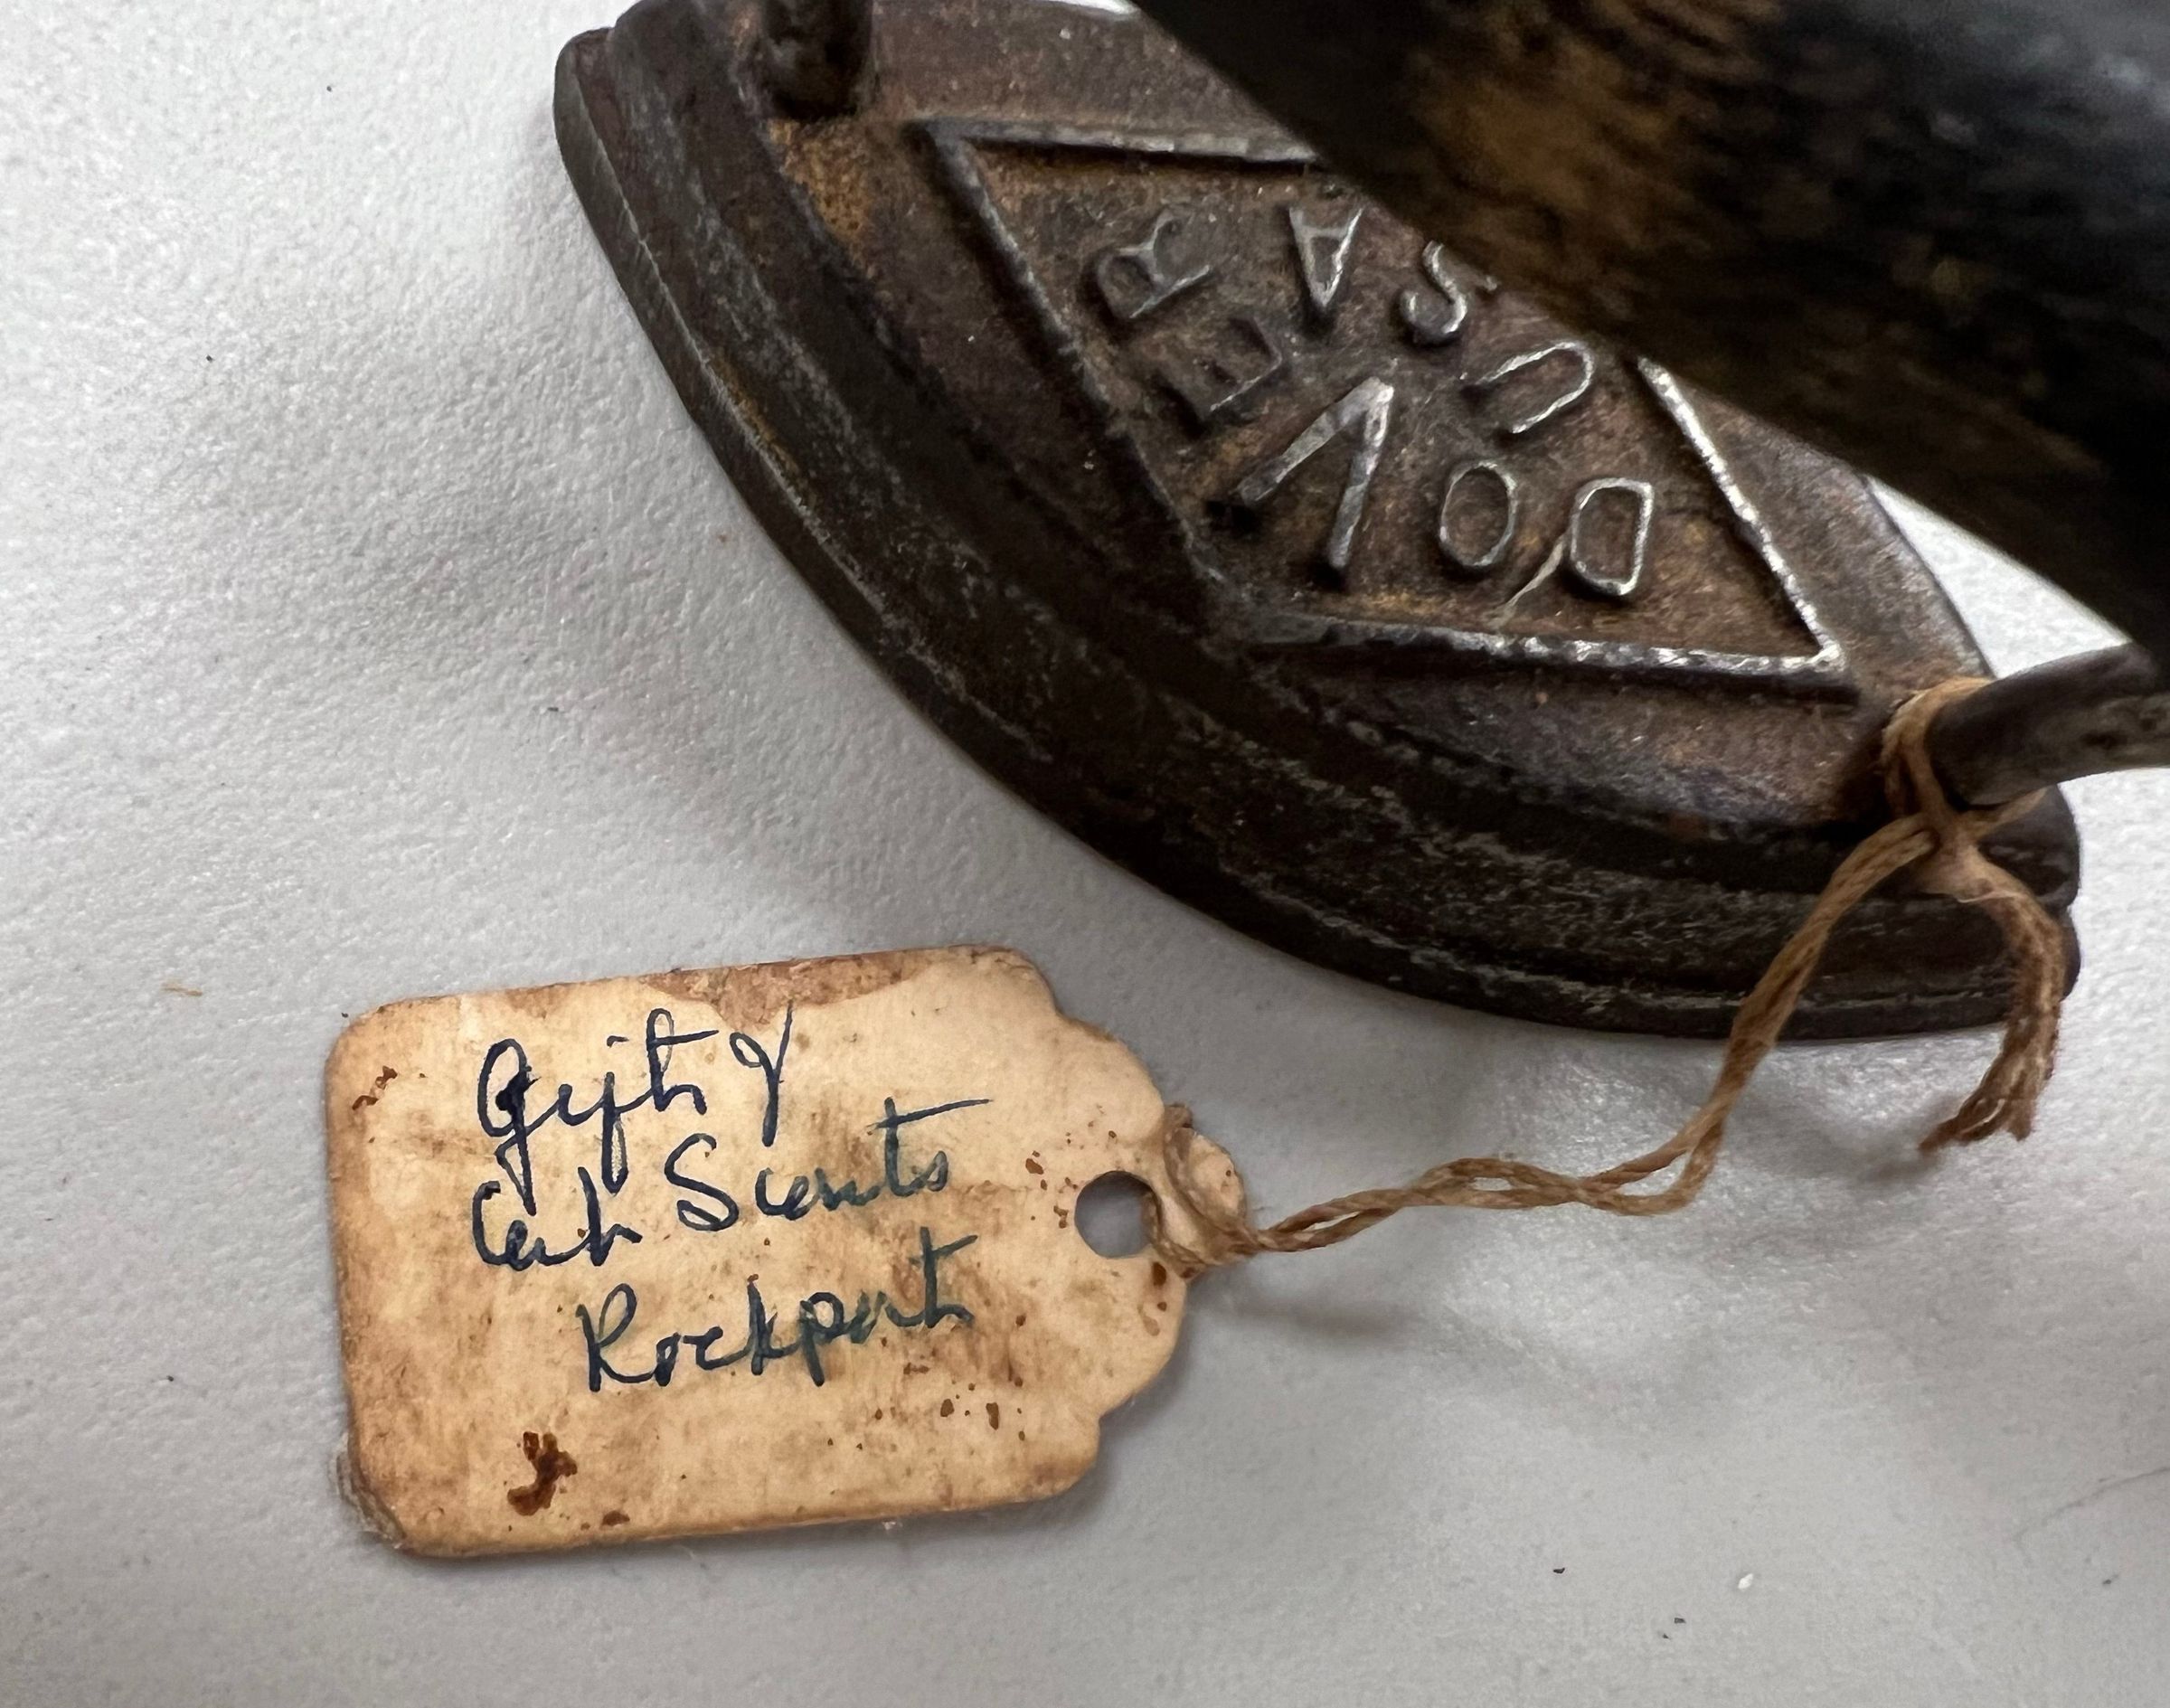 DOVER
USA
Gift of
Cub Scouts
Rockport